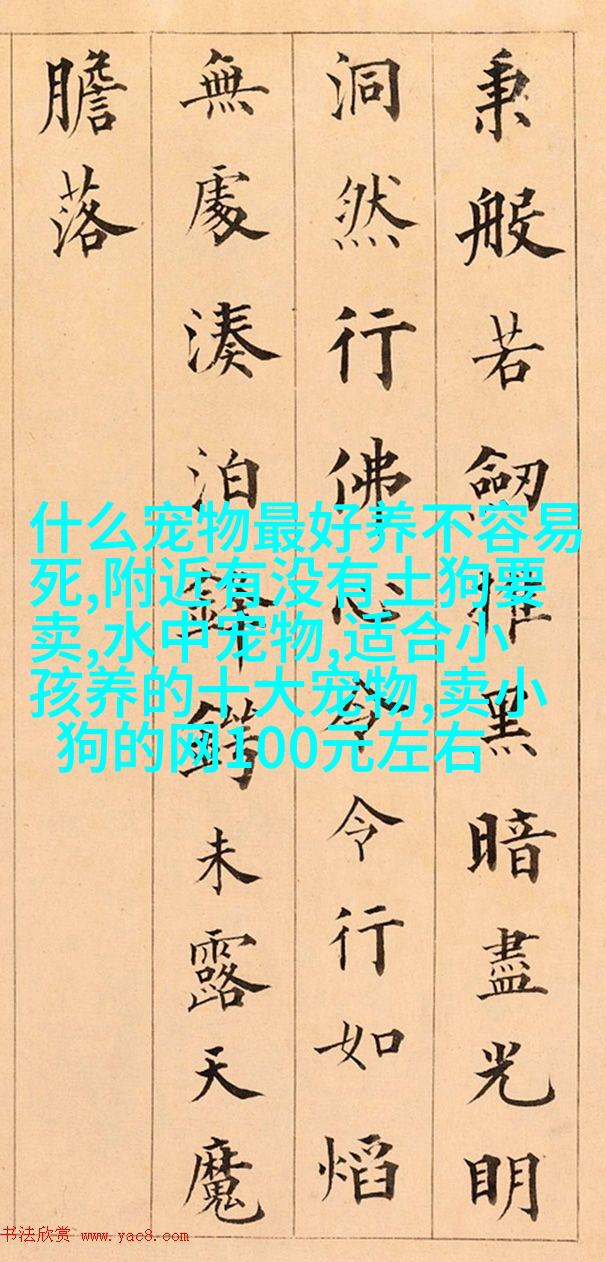 秉般若劒摧黑暗盡光明
洞然行佛心令令行如熖
無處湊泊鋒鍔未露天魔
膽落
什么宠物最好养不容易
死,附近有没有土狗要
卖,水中宠物,适合小
孩养的十大宠物,卖小
狗的网100元左右
书法欣赏 www.yac8.com